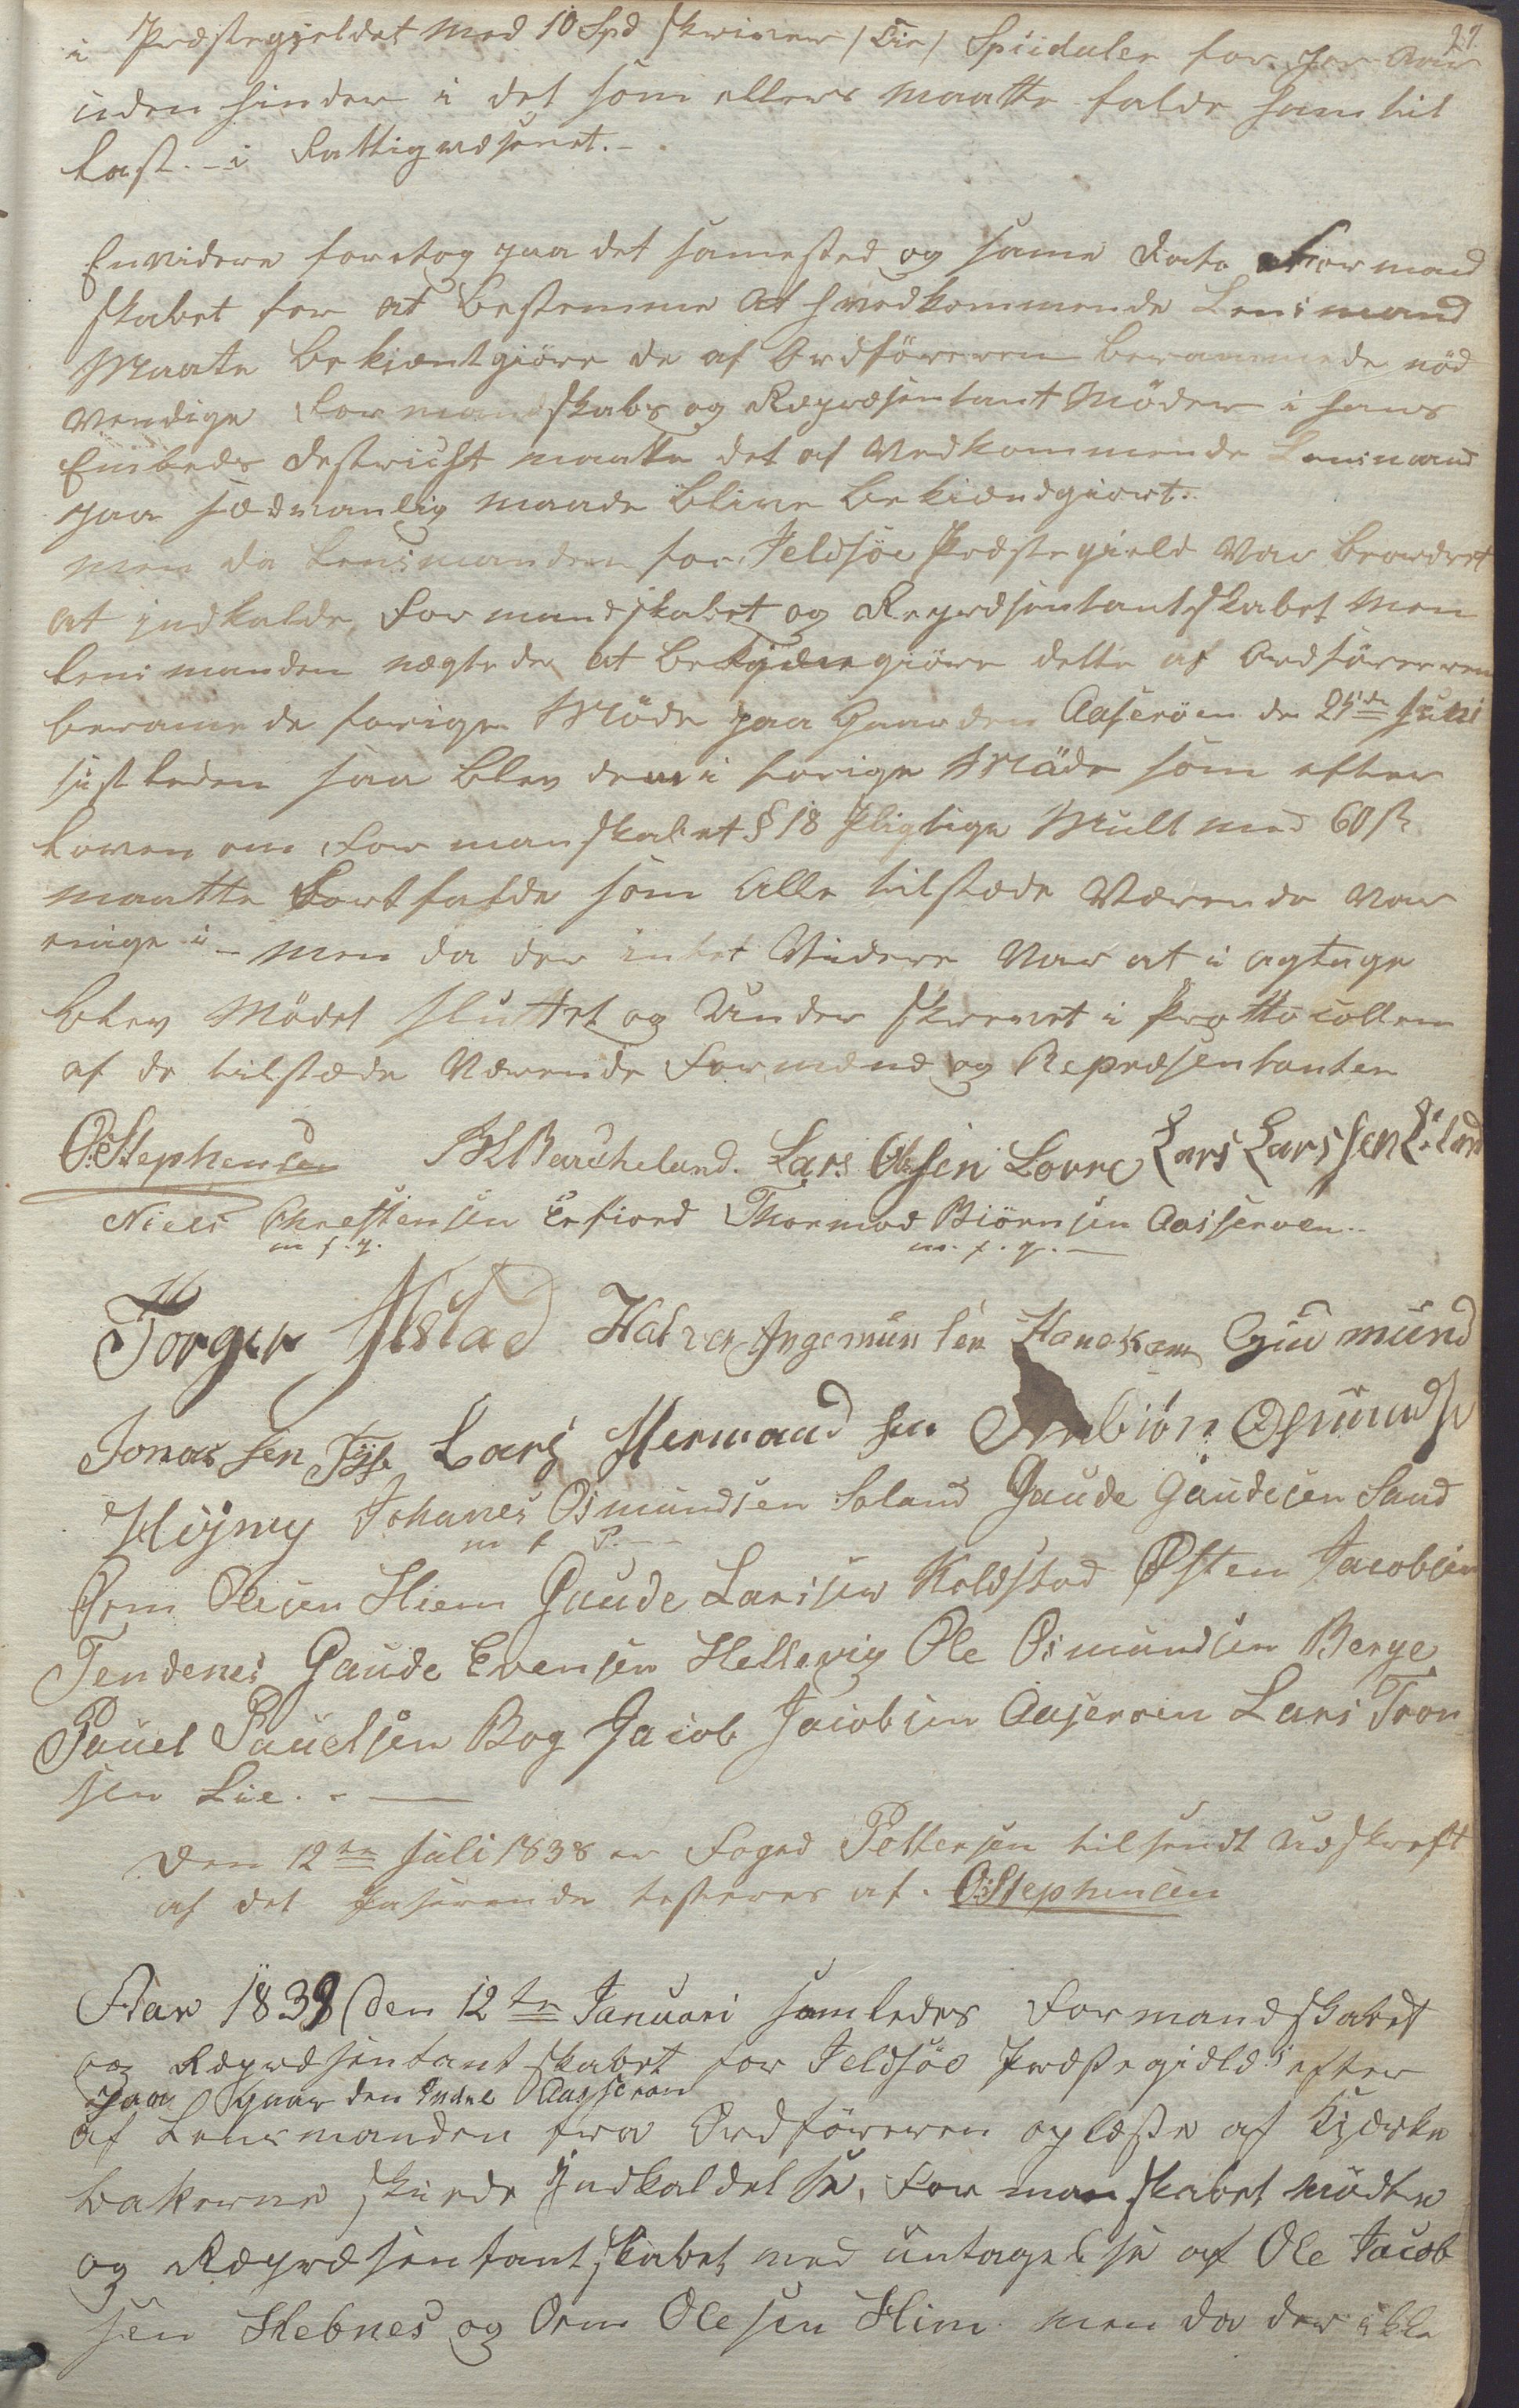 27.
i Præstegjeldet med 10 Spd skriver /Tie/ Speidaler for per Aar
uden hinder i det som ellers maatte falde ham til
Last. - i Fattigvæsenet. -
Envidere foretog paa det samested og same Dato Formand
skabet for at bestemme at hvedkommende Lensmand
Maate bekiæntgiöre de af Ordföreren berammede nöd
vendige Formandskabs og Repræsentant Möder i hans
Embeds destricht maatte det af Vedkommende Lensmand
paa sædvanlig maade blive bekiændgiort.
men da Lensmanden for Jeldsöe Præstegield var beordret
at indkalde Formandskabet og Repræsentantskabet men
lensmanden nægtede at bekjænegiöre dette af Ordföreren
berame de forige Möde paa Gaarden Aaseröen de 25de Juni
sistleden saa blev dem i forige Möde som efter
loven om Formanskabet § 18 Pligtige Mult med 60 s
maatte Bortfalde som Alle tilstæde Værende var
enige i - men da der intet Videre var at i agtage
blev Mödet sluttet og Under skrevet i Prottocollen
af de tilstæde Værende Formænd og Repræsentanter
O. Stephensen Lars Olsen Lovre Lars Larssen Eiland
Niels Chrestensen Erfiord Thormod Biörnsen Aasseroen
m f. p. m. f. p. -
Torger Alstad Halver Ingemunsen Hanakam Gudmund
Jonassen Tysse Lars Hermand sen Anbiörn Osmunds
Høyme Johanes Osmundsen Soland Gaude Gaudesen Sand
m f P. -
Orm Olesen Hiem Gaude Larssen Koldstad Østen Jacobsen
Tendenes Gaude Evensen Hellevig Ole Osmundsen Berge
Pauel Pauelsen Bog Jacob Jacobsen Aaseroen Lars Tron
sen Lie. -
Den 12te Juli 1838 er Foged Pettersen tilsendt udskreft
af det Paserende testeres af. O. Stephensen
Aar 1839 den 12te Januari samledes Formandskabet
og Repræsentantskabet for Jeldsöe Præstegields efter
paa Gaarden Indre Aasseröen
af Lensmanden fra Ordföreren oplæste af Kjærke
bakerne skiede Indkaldelse, Formanskabet mödte
og Repræsentantskabet med untagelse af Ole Jacob
sen Hebnes og Orm Olesen Him men da der ikke